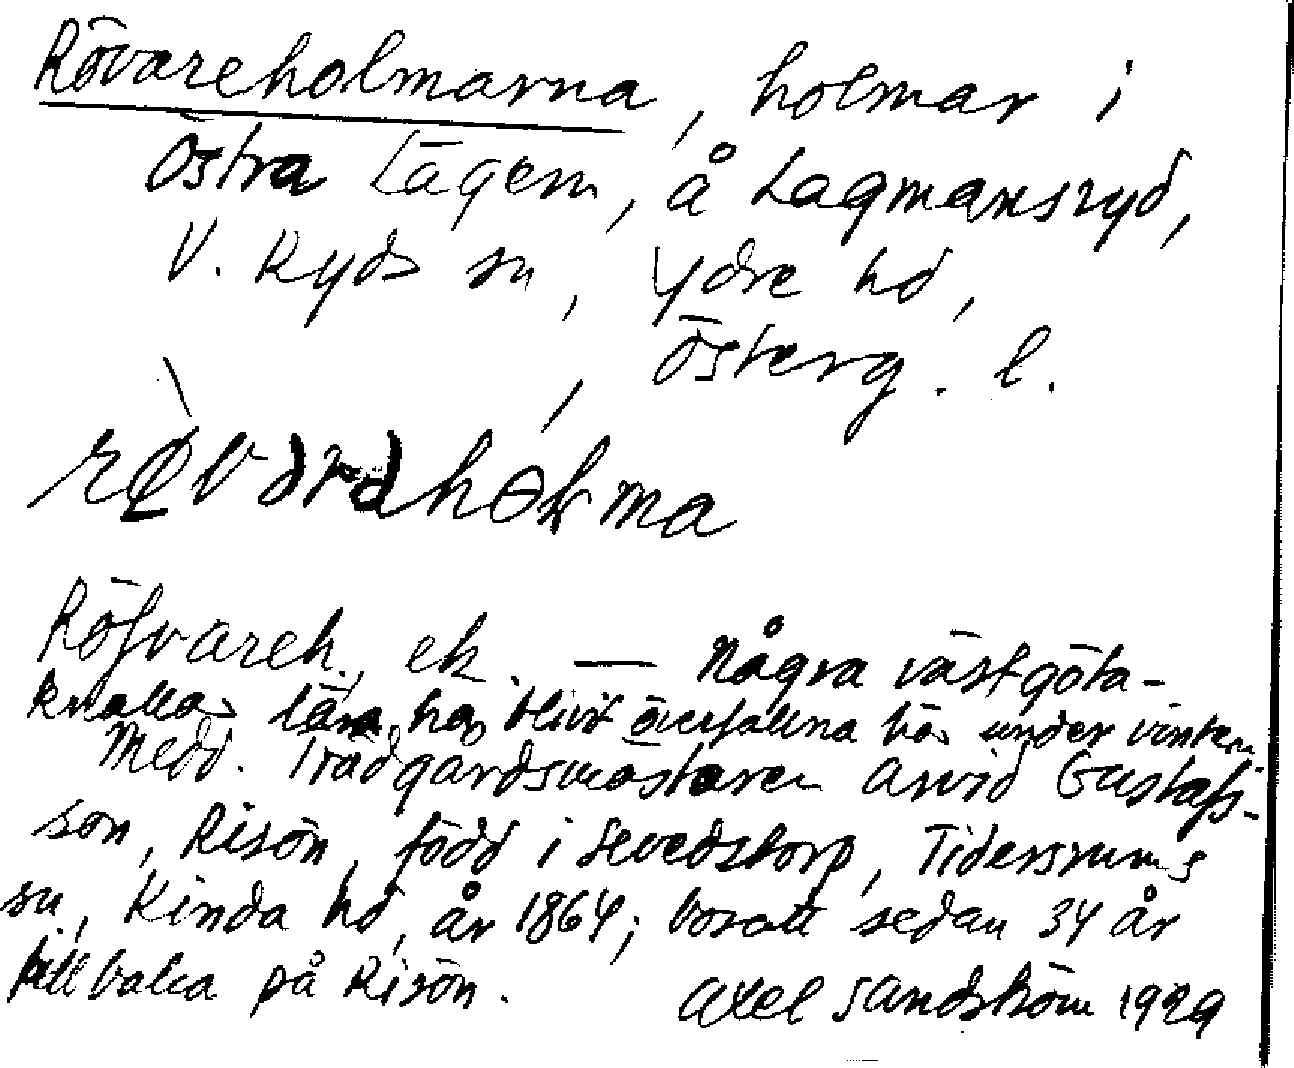 Rövareholmarna, holmar i
Östra Lägern, å Lagmansryd,
V. Ryds sn, Ydre hd,
Österg. l.
Röfvareh., ek. — Några västgöta-
knallar lära ha blivit överfallna här under vintern
Medd. Trädgårdsmästaren Arvid Gustafs-
son, Risön, född i Sevedstorp, Tidersrums
sn, Kinda hd, år 1864; bosatt sedan 34 år
tillbaka på Risön. Axel Sandström 1929